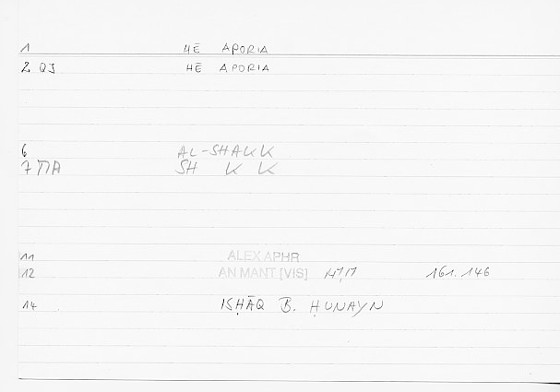 1 HĒ APORIA
2 Q3 HĒ APORIA
6 AL-SHAKK
7 TTA SH K K
11 ALEX APHR
12 AN MANT [VIS] 161.146
14 ISḤĀQ B. ḤUNAYN